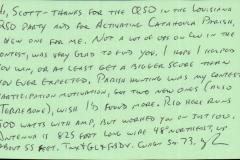 Hi, Scott- Thanks for the QSO in the Louisiana
QSO Party and for activating Catahoula Parish,
a new one for me. Not a lot of ops on CW in the
contest, was very glad to find you. I hope I helped
you win, or at least get a bigger score than
you ever expected. Parish hunting was my contest
participation motivation, got two new ones (also
Terrebonne), wish I'd found more. Rig here runs
500 watts with amp, but worked you on just 100.
Antenna is 825 feet long wire NE/SW, up
about 55 feet. Tnx GL 73